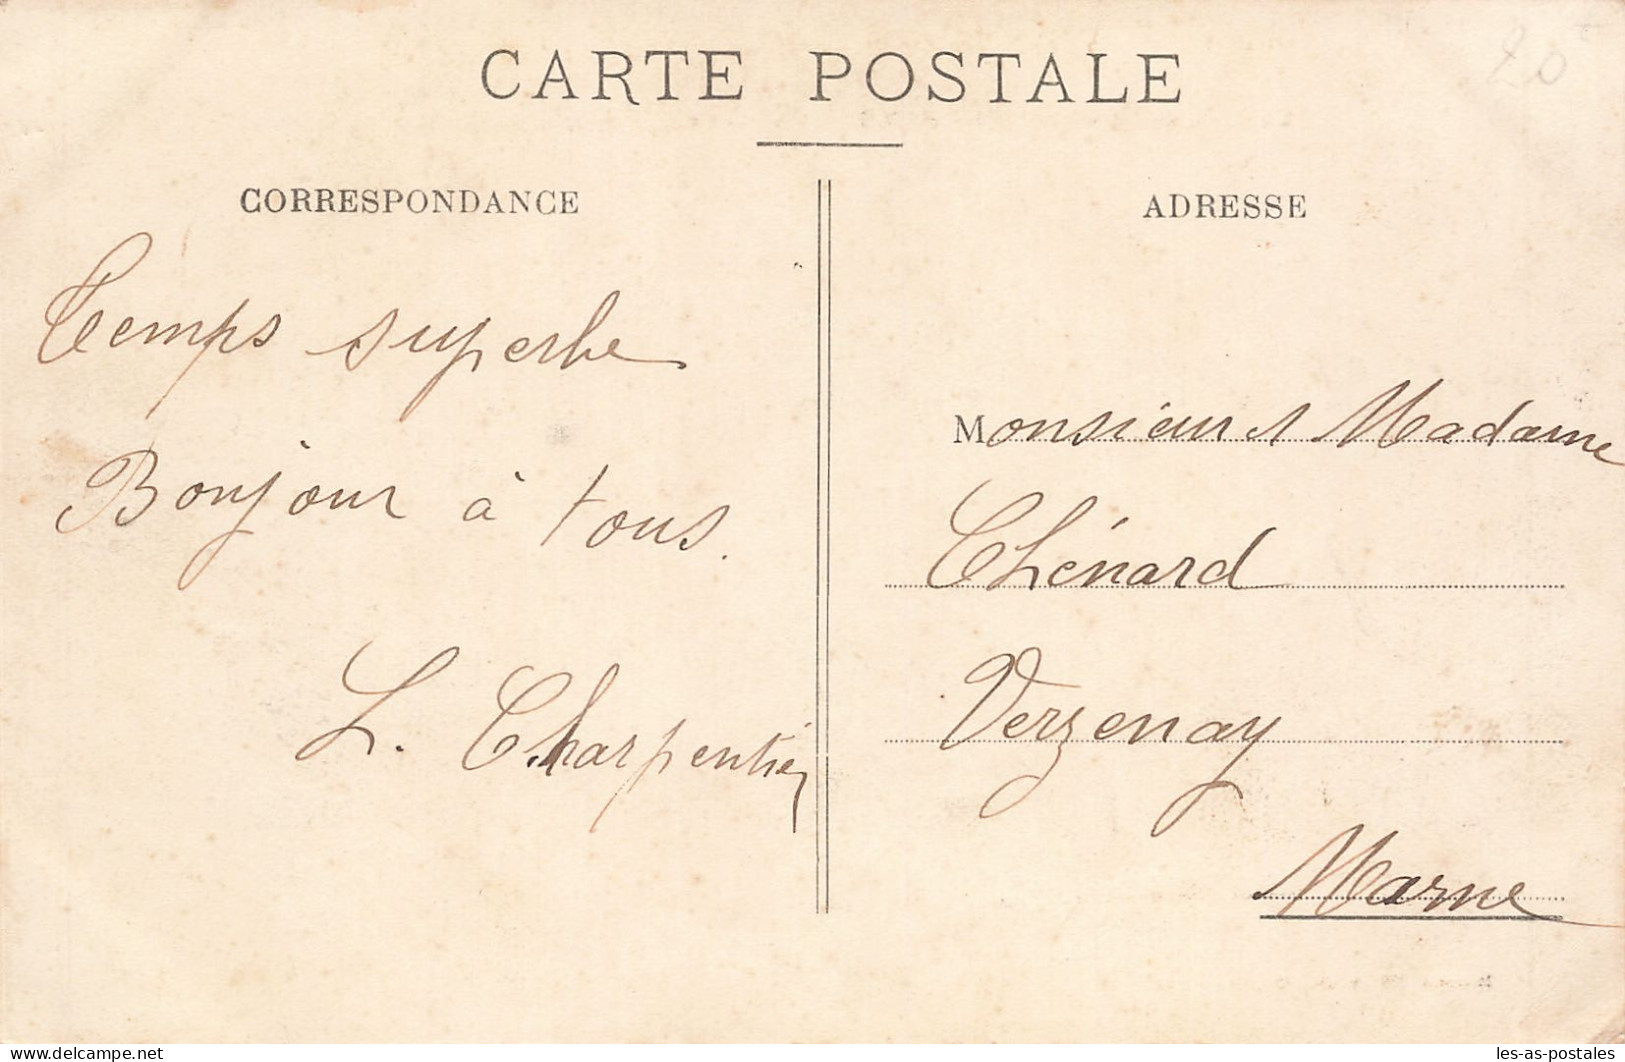 CARTE POSTALE
20€
CORRESPONDANCE
Temps superbe
Bonjour à tous.
L. Charpentier
ADRESSE
Monsieur et Madame
Thénard
Verzenay
Marne
www.delcampe.net
les-as-postales